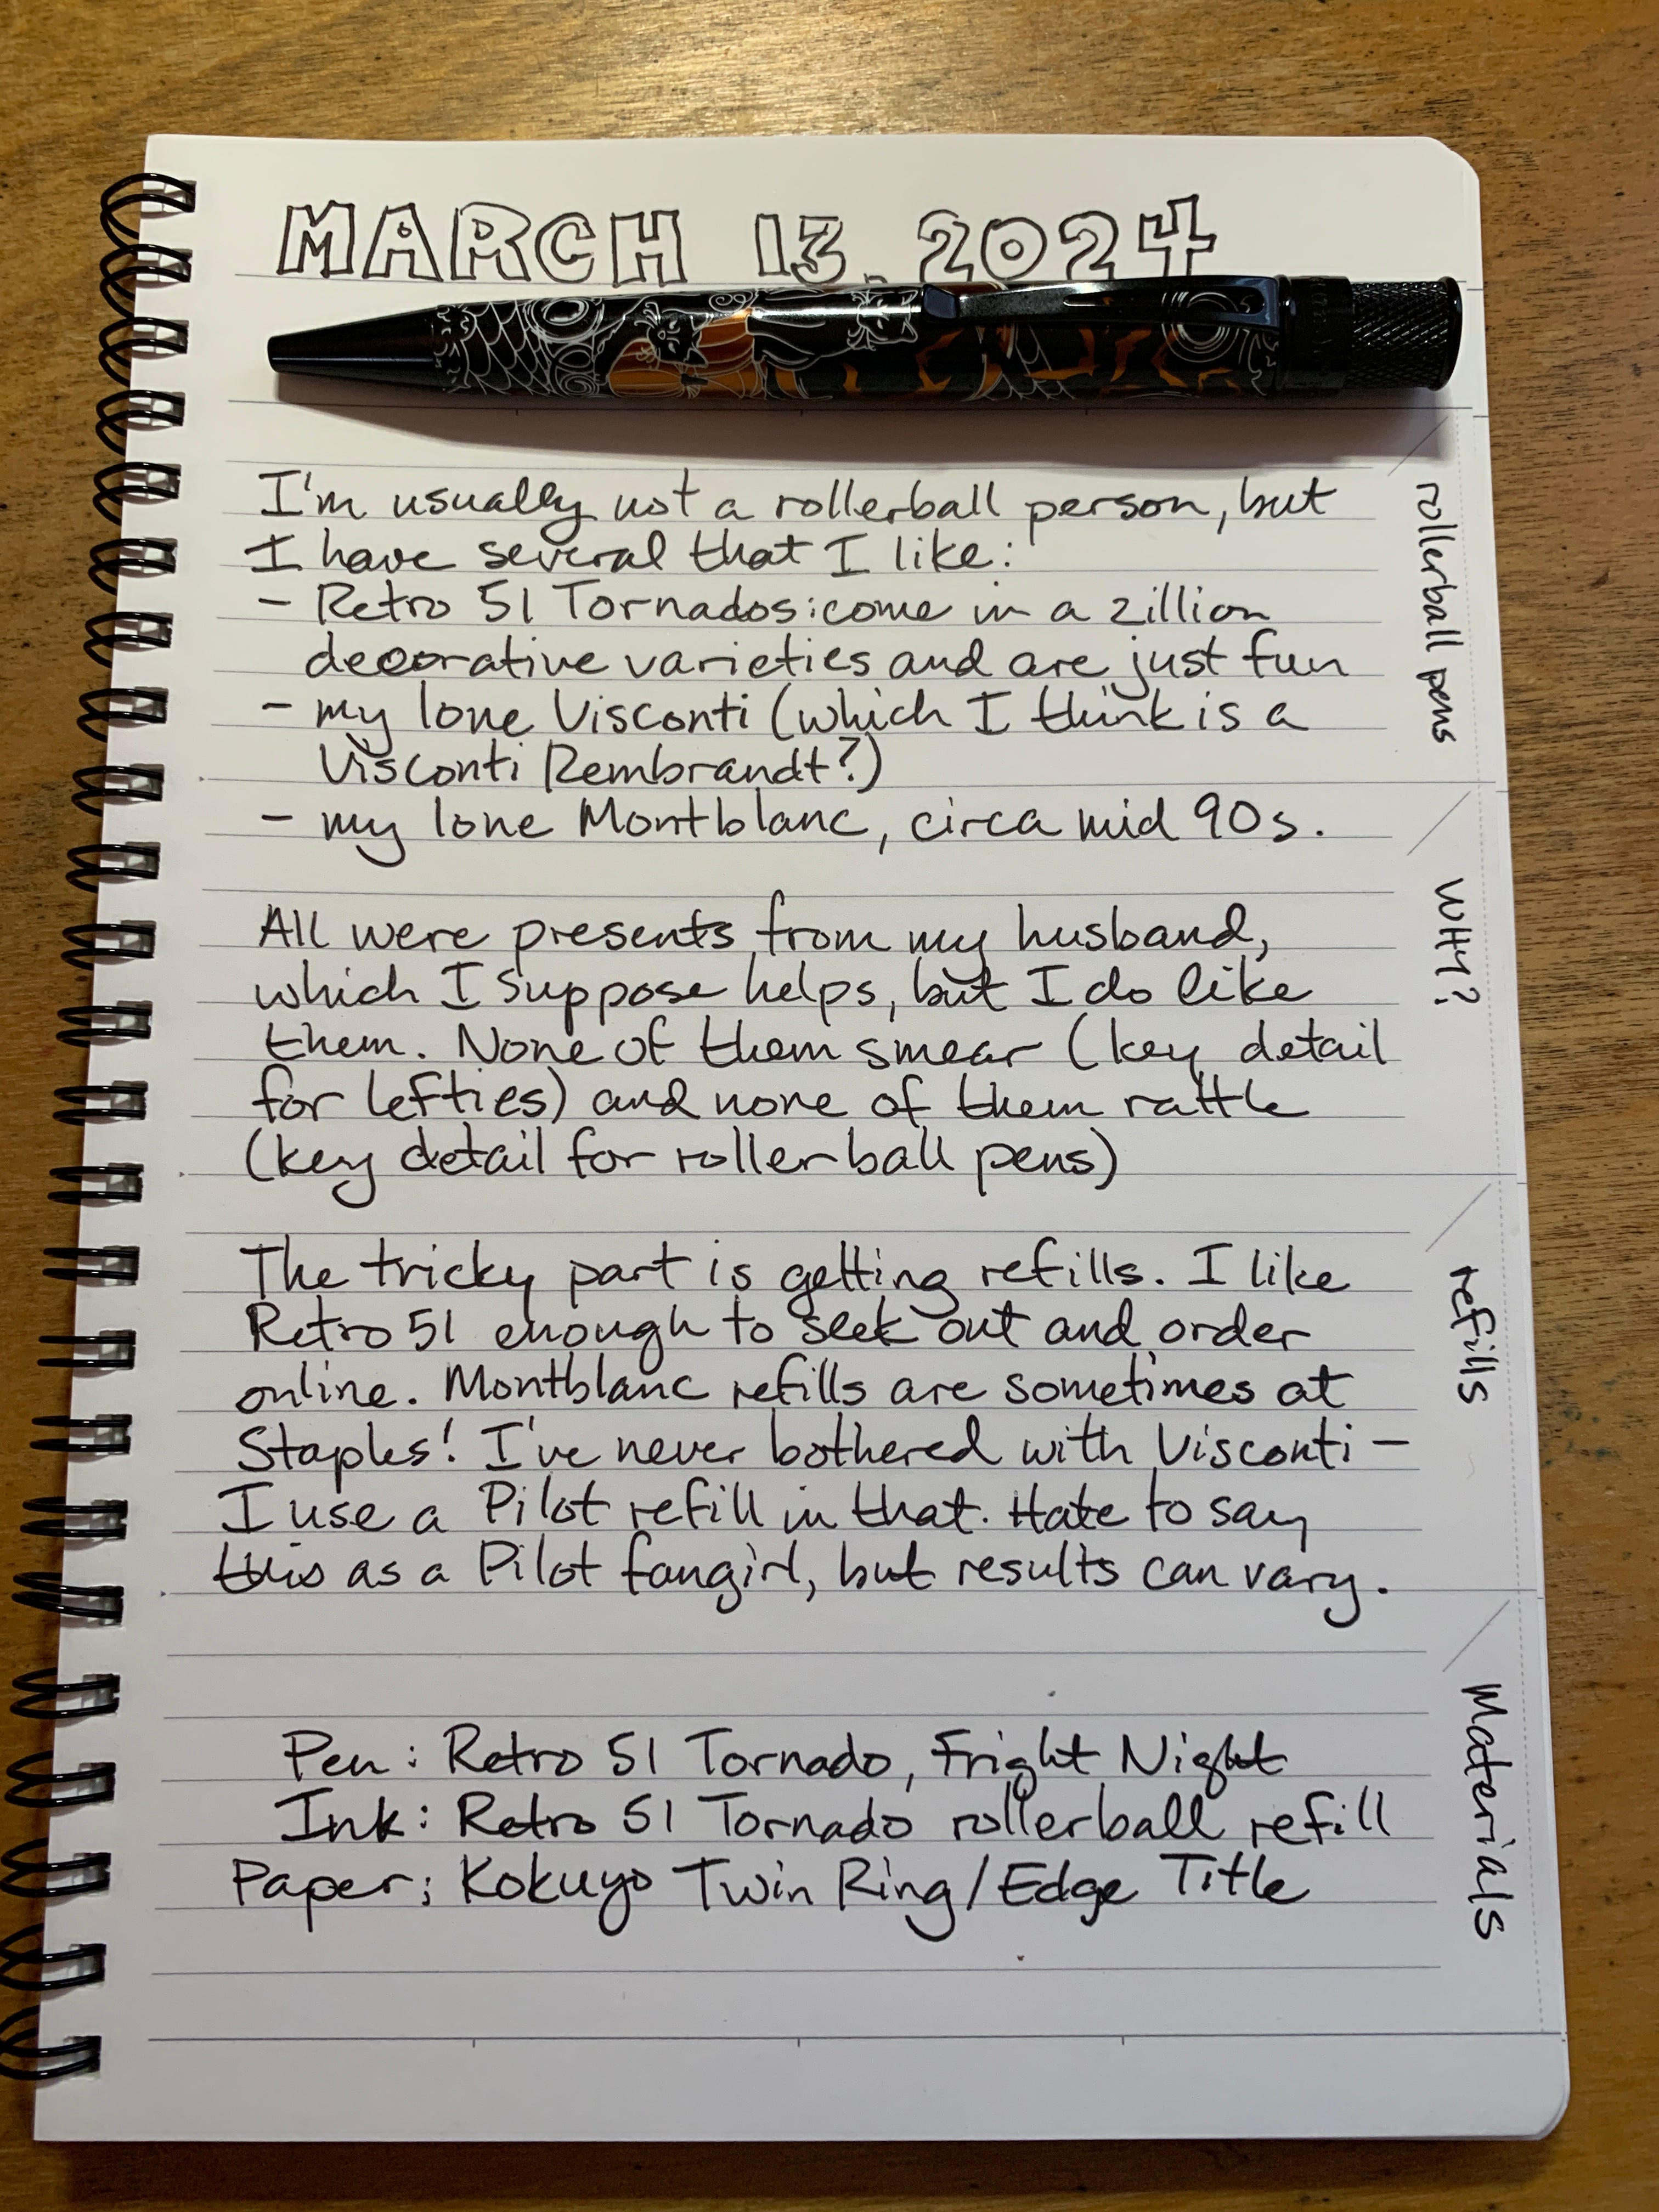 MARCH 13, 2024
I'm usually not a rollerball person, but
I have several that I like:
- Retro 51 Tornados: come in a zillion
decorative varieties and are just fun
- my lone Visconti (which I think is a
Visconti Rembrandt?)
- my lone Montblanc, circa mid 90s.
rollerball pens
All were presents from my husband,
which I suppose helps, but I do like
them. None of them smear (key detail
for lefties) and none of them rattle
(key detail for rollerball pens)
WHY?
The tricky part is getting refills. I like
Retro 51 enough to seek out and order
online. Montblanc refills are sometimes at
Staples! I've never bothered with Visconti -
I use a Pilot refill in that. Hate to say
this as a Pilot fangirl, but results can vary.
refills
Pen: Retro 51 Tornado, Fright Night
Ink: Retro 51 Tornado rollerball refill
Paper: Kokuyo Twin Ring/Edge Title
Materials